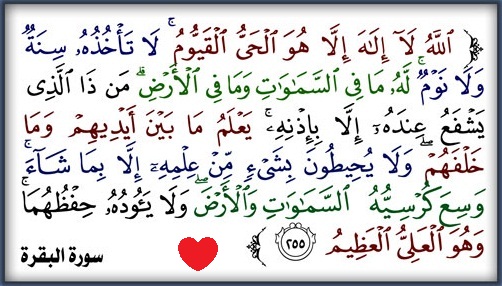 ٱللَّهُ لَآ إِلَـٰهَ إِلَّا هُوَ ٱلْحَىُّ ٱلْقَيُّومُ ۚ لَا تَأْخُذُهُۥ سِنَةٌ
وَلَا نَوْمٌ ۚ لَّهُۥ مَا فِى ٱلسَّمَـٰوَٰتِ وَمَا فِى ٱلْأَرْضِ ۗ مَن ذَا ٱلَّذِى
يَشْفَعُ عِندَهُۥٓ إِلَّا بِإِذْنِهِۦ ۚ يَعْلَمُ مَا بَيْنَ أَيْدِيهِمْ وَمَا
خَلْفَهُمْ ۖ وَلَا يُحِيطُونَ بِشَىْءٍ مِّنْ عِلْمِهِۦٓ إِلَّا بِمَا شَآءَ ۚ
وَسِعَ كُرْسِيُّهُ ٱلسَّمَـٰوَٰتِ وَٱلْأَرْضَ ۖ وَلَا يَـُٔودُهُۥ حِفْظُهُمَا ۚ
وَهُوَ ٱلْعَلِىُّ ٱلْعَظِيمُ ٢٥٥
سورة البقرة